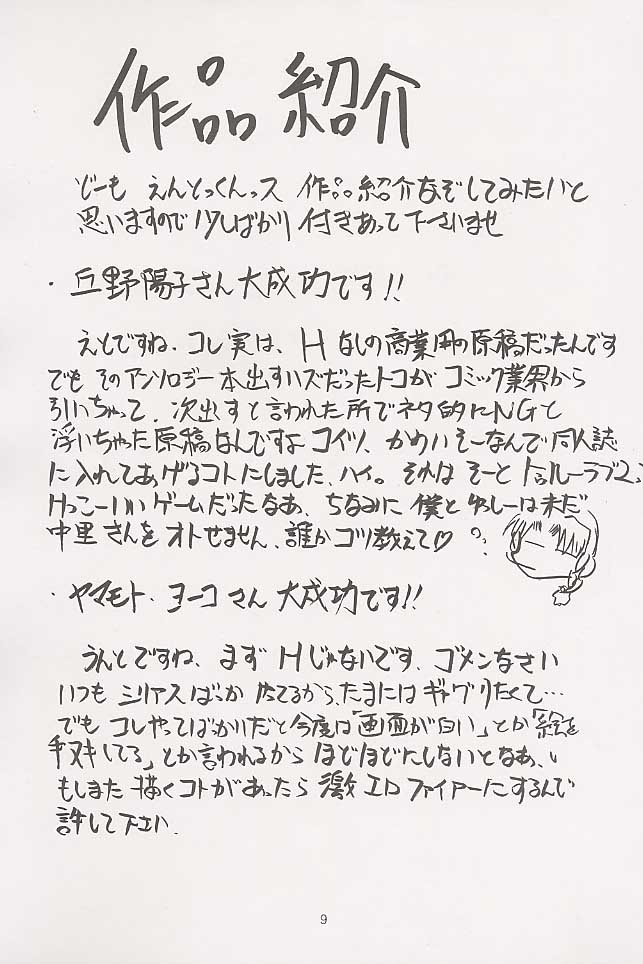 作品紹介
どーも えんとっくんっス 作品紹介なぞしてみたいと
思いますので少しばかり 付きあって下さいませ
・丘野陽子さん大成功です!!
えとですね、コレ実は、Hなしの商業用の原稿だったんです
でも そのアンソロジー本出すハズだったトコが コミック業界から
引いちゃって、次出すと言われた所でネタ的にNGと
浮いちゃった原稿なんですよ コイツ、かわいそーなんで同人誌
に入れてあげるコトにしました、ハイ。それはそーと トゥルーラブ2、
けっこーいい ゲームだったなあ、ちなみに 僕と ゆしーは未だ
中里さんを オトせません、誰かコツ教えて♡
・ヤマモト・ヨーコさん 大成功です!!
うんとですね、まず Hじゃないです、ゴメンなさい
いつも シリアスばっか たてるから、たまには ギャグりたくて…
でも コレやってばっかいだと 今度は「画面が白い」とか「絵を
手ヌキしてる」とか言われるから ほどほどにしないとなあ、
もしまた 描くコトがあったら 激エロファイアーにするんで
許して下さい、
9